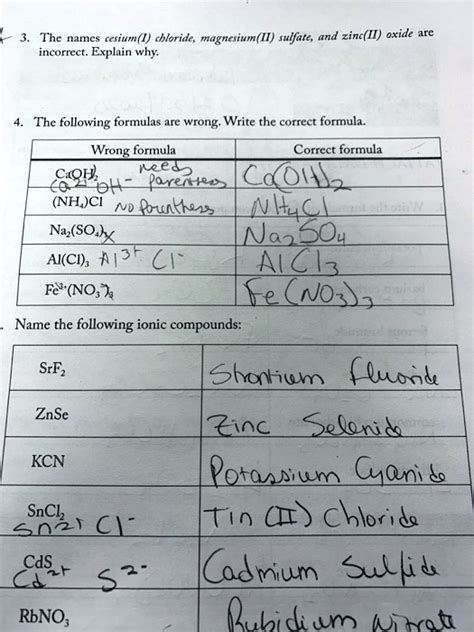 3. The names cesium(I) chloride, magnesium(II) sulfate, and zinc(II) oxide are
incorrect. Explain why.
4. The following formulas are wrong. Write the correct formula.
Wrong formula Correct formula
CaOH₂ needs Ca(OH)₂
Ca²⁺ OH⁻ parentheses
(NH₄)Cl No parentheses NH₄Cl
Na₂(SO₄) Na₂SO₄
Al(Cl)₃ Al³⁺ Cl⁻ AlCl₃
Fe³⁺(NO₃⁻)₃ Fe(NO₃)₃
Name the following ionic compounds:
SrF₂ Strontium fluoride
ZnSe Zinc Selenide
KCN Potassium Cyanide
SnCl₂ Tin (II) Chloride
Sn²⁺ Cl⁻
CdS Cadmium Sulfide
Cd²⁺ S²⁻
RbNO₃ Rubidium Nitrate